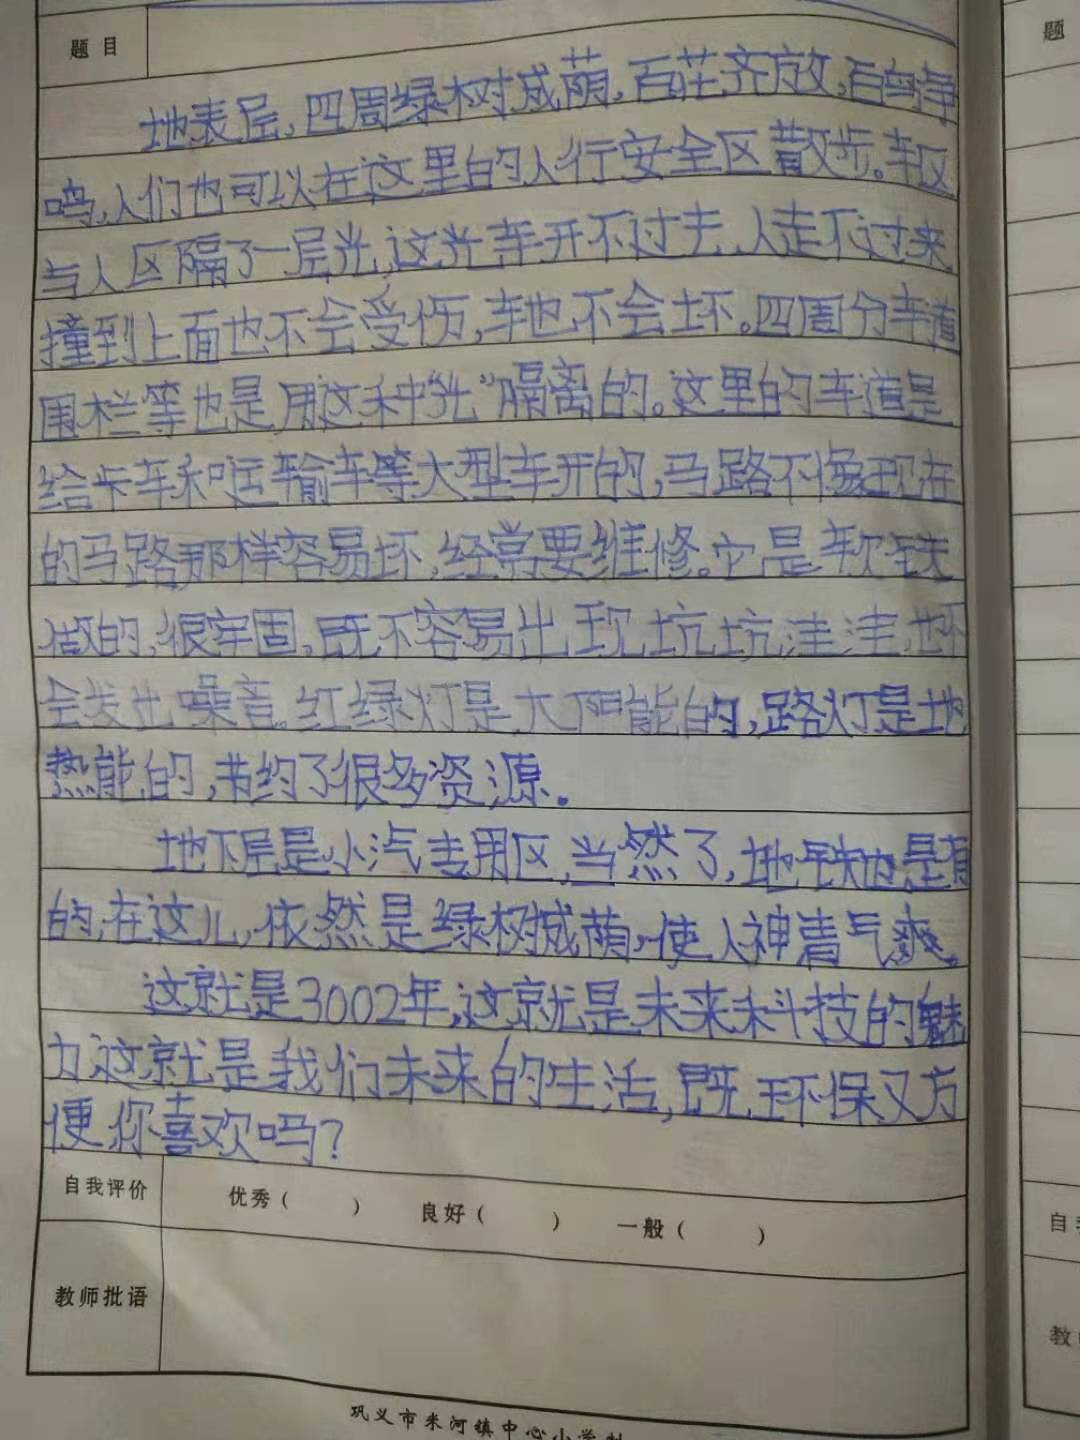 题目
题
地表层,四周绿树成萌,百花齐放,百鸟争
鸣,人们也可以在这里的人行安全区散步。车区
与人区隔了一层光,这光车开不过去,人走不过来,
撞到上面也不会受伤,车也不会坏。四周分车道
围栏等也是用这种“光”隔离的。这里的车道是
给卡车和运输车等大型车开的,马路不像现在
的马路那样容易坏,经常要维修。它是软铁
做的,很牢固,既不容易出现坑坑洼洼,也不
会发出噪音。红绿灯是太阳能的,路灯是地
热能的,节约了很多资源。
地下层是小汽专用区,当然了,地铁也是有
的,在这儿,依然是绿树成萌,使人神清气爽。
这就是3002年,这就是未来科技的魅
力,这就是我们未来的生活,既环保又方
便,你喜欢吗?
自我评价 优秀( ) 良好( ) 一般( )
教师批语
巩义市米河镇中心小学制